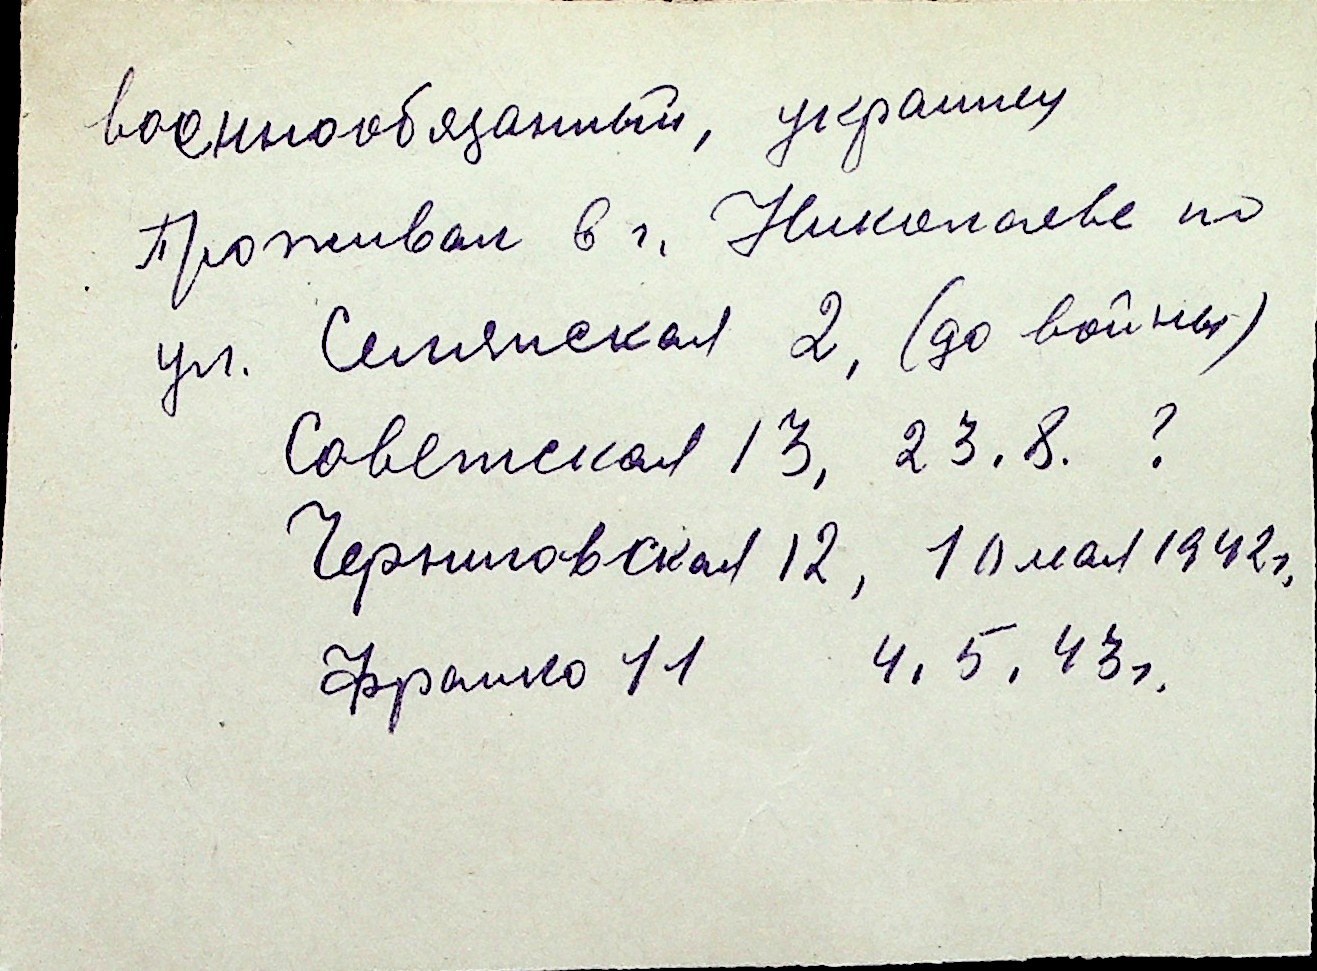 военнообязанный, украинец
Проживал в г. Николаеве по
ул. Селянская 2, (до войны)
Советская 13, 23.8. ?
Черниговская 12, 10 мая 1942г.
Франко 11 4.5.43г.